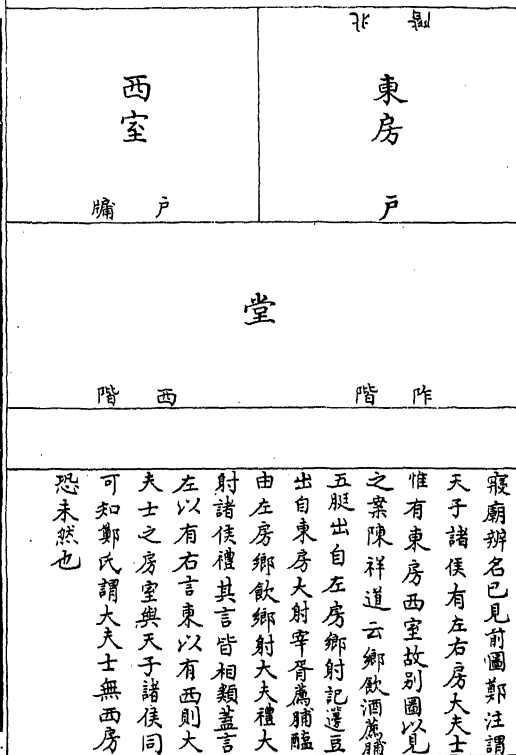 北階
東房
户
西室
户牖
堂
阼階
西階
寢廟辨名已見前圖鄭注謂
天子諸侯有左右房大夫士
惟有東房西室故别圖以見
之案陳祥道云鄉飲酒薦脯
五脡出自左房鄉射記籩豆
出自東房大射宰胥薦脯醢
由左房鄉飲鄉射大夫禮大
射諸侯禮其言皆相類蓋言
左以有右言東以有西則大
夫士之房室與天子諸侯同
可知鄭氏謂大夫士無西房
恐未然也